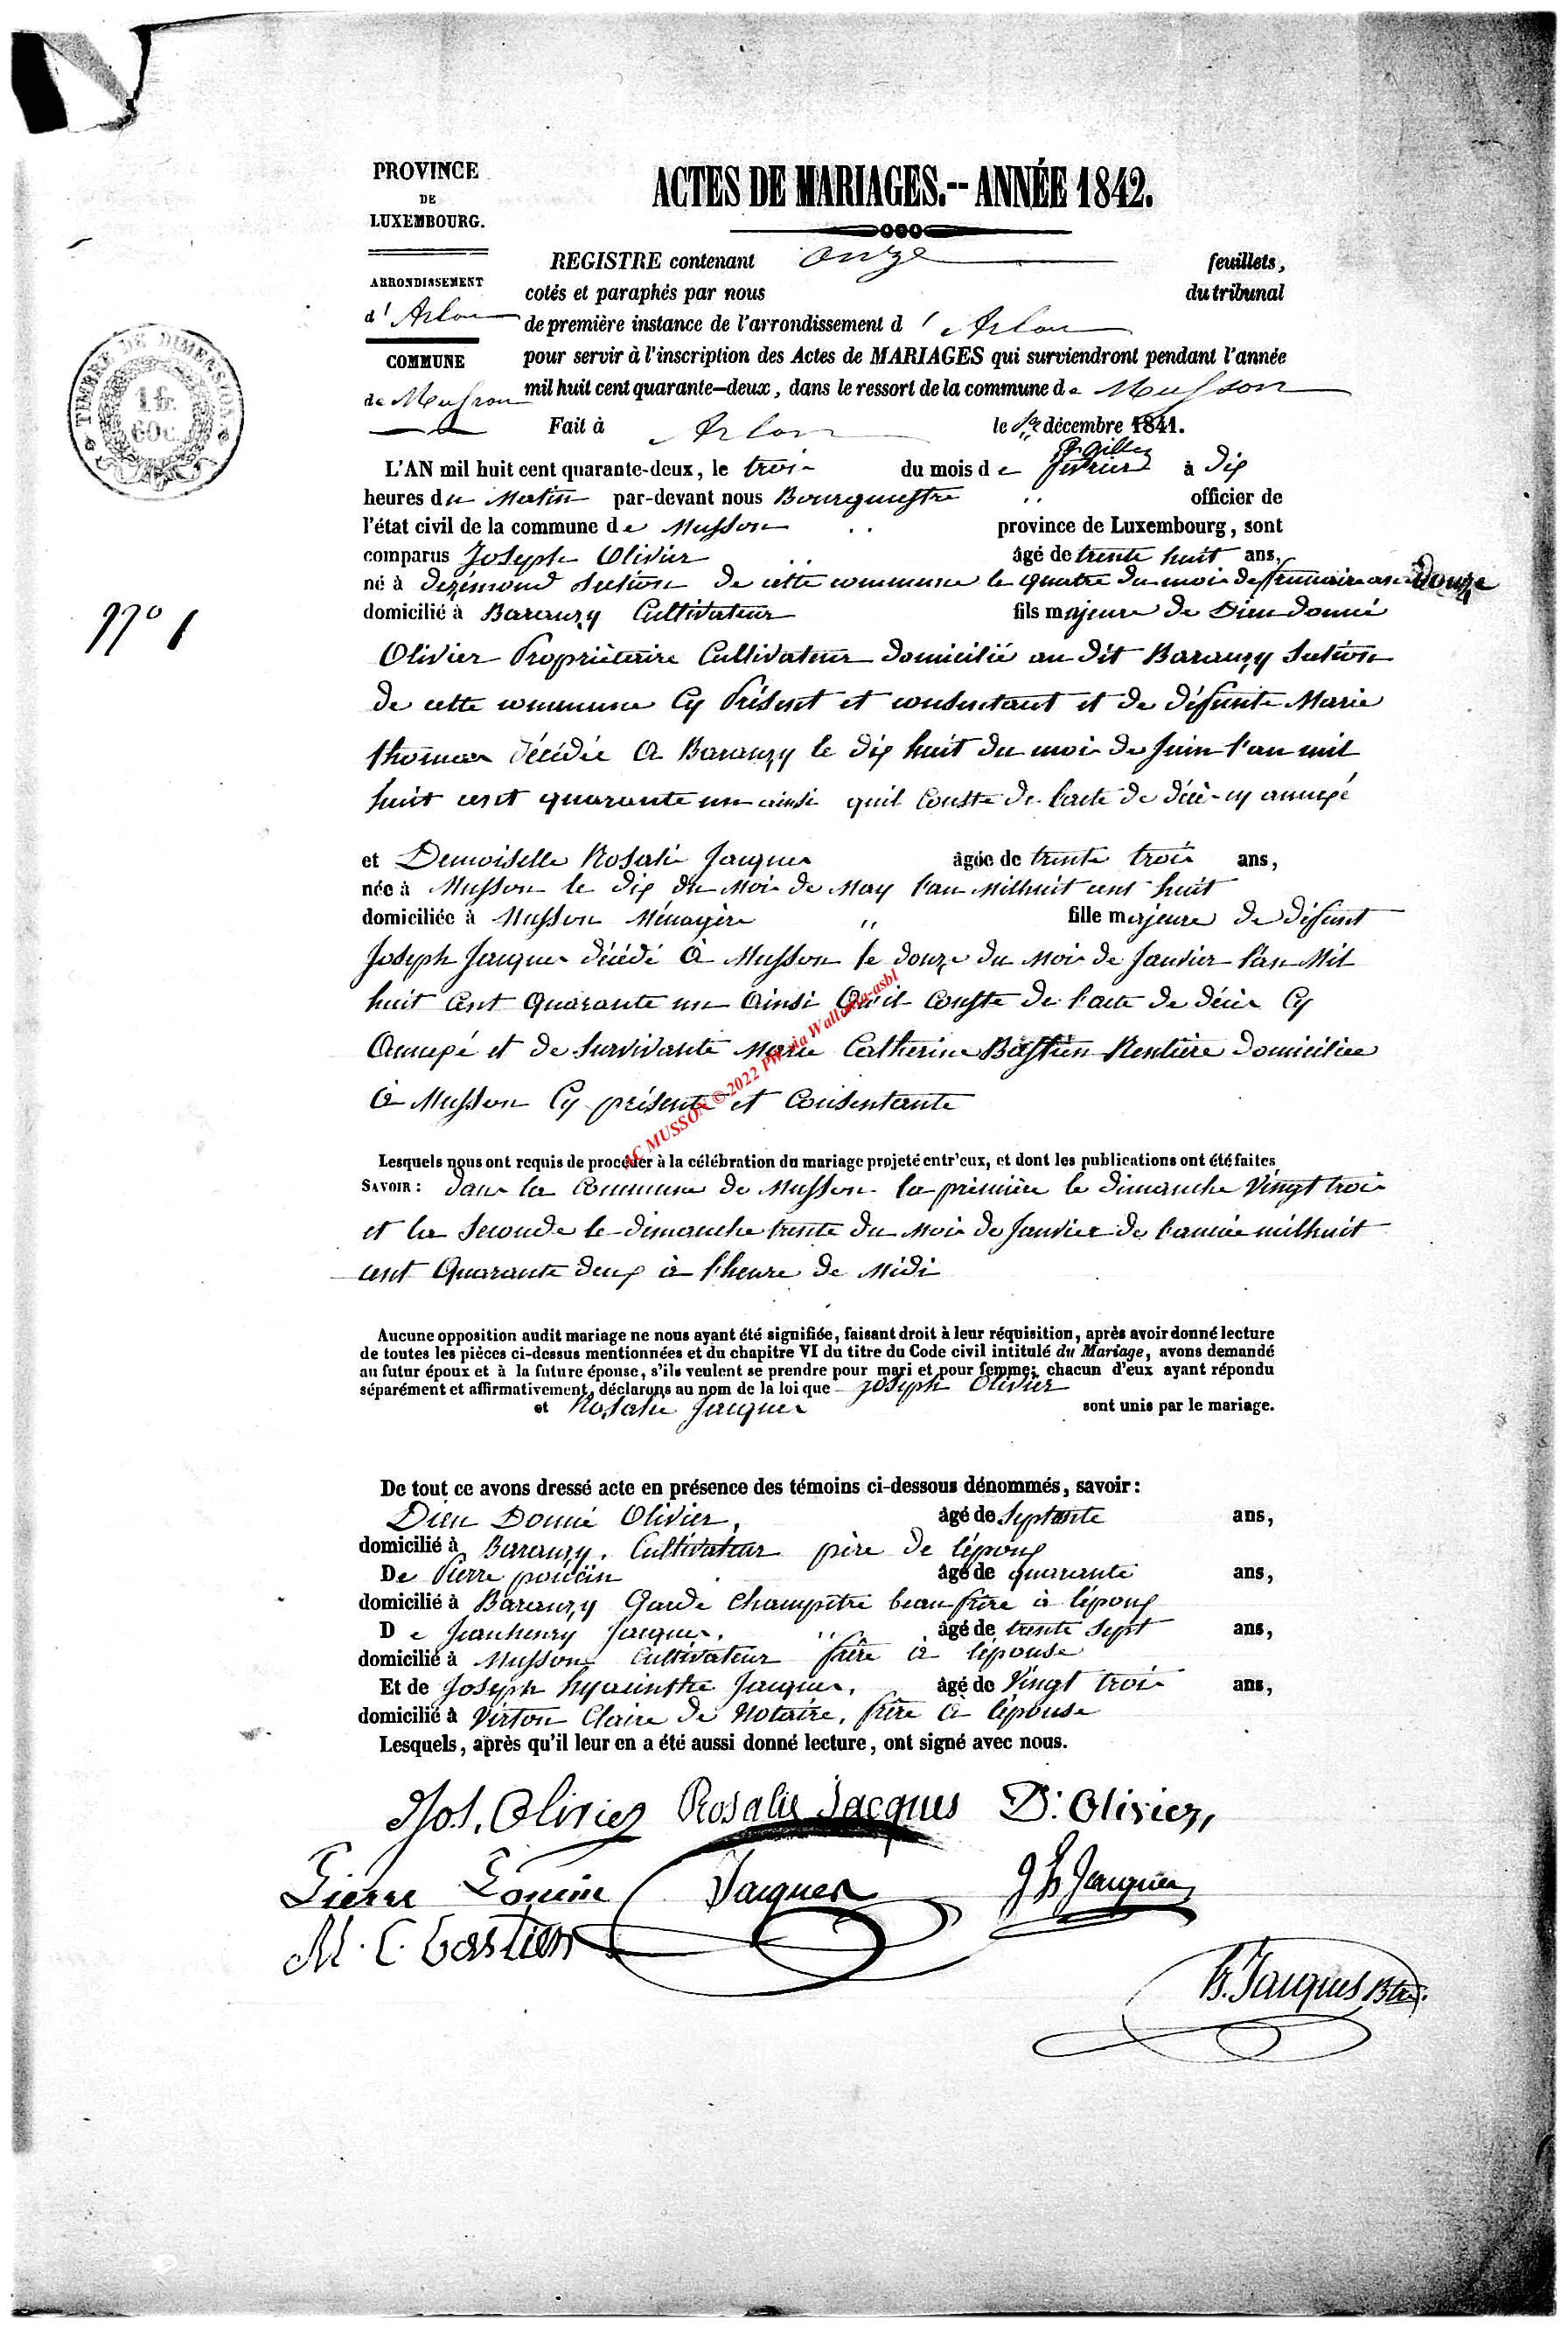 PROVINCE
DE
LUXEMBOURG.
ARRONDISSEMENT
d' Arlon
COMMUNE
de Musson
ACTES DE MARIAGES.-- ANNÉE 1842.
REGISTRE contenant onze feuillets,
cotés et paraphés par nous du tribunal
de première instance de l'arrondissement d ' Arlon
pour servir à l'inscription des Actes de MARIAGES qui surviendront pendant l'année
mil huit cent quarante-deux, dans le ressort de la commune de Musson
Fait à Arlon le décembre 1841.
TIMBRE DE DIMENSION
1 fr.
60 c.
L'AN mil huit cent quarante-deux, le trois du mois de février à dix
heures du Matin par-devant nous Bourguestre officier de
l'état civil de la commune de Musson province de Luxembourg, sont
comparus Joseph Olivier âgé de trente huit ans,
né à section de cette commune le quatre du mois de frimaire an douze
N° 1
domicilié à Baranzy Cultivateur fils majeure de Dieu donné
Olivier Propriétaire Cultivateur domicilié au dit Baranzy Section
de cette commune Cy Présent et consentant et de défunte Marie
thomas décédée a Baranzy le dix huit du mois de Juin l'an mil
huit cent quarante un ainsi quil Conste de l'acte de décès cy annexé
et Demoiselle Rosalie Jacques âgée de trente trois ans,
née à Musson le dix du Mois de May l'an Milhuit cent huit
domiciliée à Musson Ménagère fille majeure de défunt
Joseph Jacques décédé à Musson le douze du Mois de Janvier l'an Mil
huit Cent Quarante un Ainsi Qu'il Conste de l'acte de décès Cy
Annexé et de Survivante Marie Catherine Bastien Rentière domiciliée
à Musson Cy présente et Consentante
AC MUSSON © 2022 PW via Wallonia-asbl
Lesquels nous ont requis de procéder à la célébration du mariage projeté entr'eux, et dont les publications ont été faites,
SAVOIR : dans la Commune de Musson la première le dimanche Vingt trois
et la Seconde le dimanche trente du Mois de Janvier de l'année milhuit
cent Quarante deux à l'heure de Midi
Aucune opposition audit mariage ne nous ayant été signifiée, faisant droit à leur réquisition, après avoir donné lecture
de toutes les pièces ci-dessus mentionnées et du chapitre VI du titre du Code civil intitulé du Mariage, avons demandé
au futur époux et à la future épouse, s'ils veulent se prendre pour mari et pour femme; chacun d'eux ayant répondu
séparément et affirmativement, déclarons au nom de la loi que Joseph Olivier
et Rosalie Jacques sont unis par le mariage.
De tout ce avons dressé acte en présence des témoins ci-dessous dénommés, savoir :
Dieu Donné Olivier, âgé de Septante ans,
domicilié à Baranzy, Cultivateur père de l'époux
De Pierre âgé de quarante ans,
domicilié à Baranzy Garde Champêtre beau frère à l'époux
De Jeanhenry Jacques, âgé de trente Sept ans,
domicilié à Musson Cultivateur frère à l'épouse
Et de Joseph hyacinthe Jacques, âgé de Vingt trois ans,
domicilié à Virton Claire de Notaire, frère à l'épouse
Lesquels, après qu'il leur en a été aussi donné lecture, ont signé avec nous.
Jos. Olivier Rosalie Jacques D: Olivier,
Pierre Jacques J h Jacques
M. C. bastien
h. Jacques Btre.